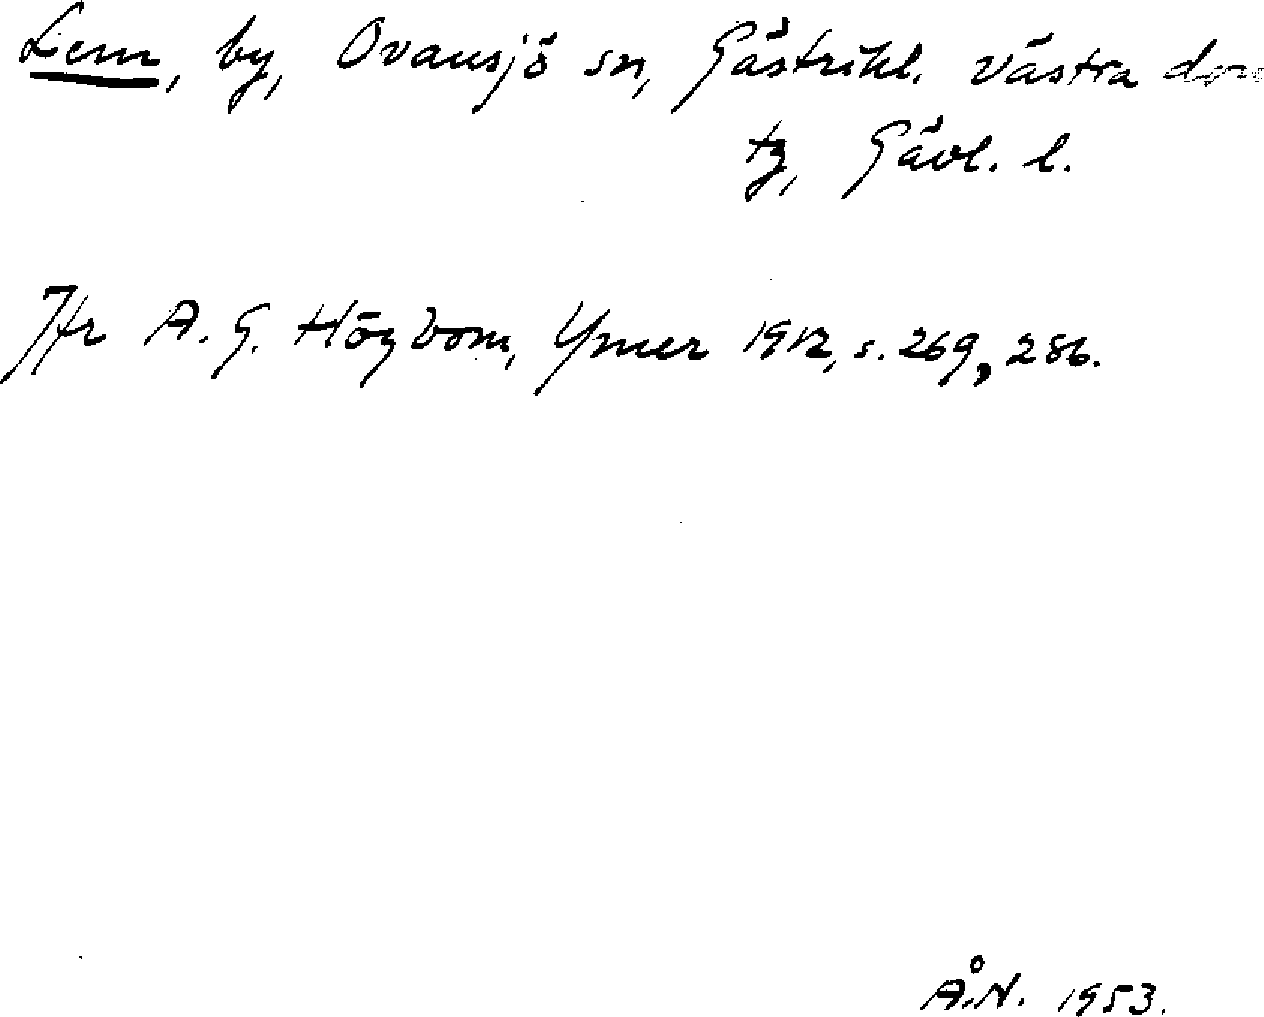 Lem, by, Ovansjö sn, Gästrikl. västra dom
tg, Gävl. l.
Jfr A. G. Högbom, Ymer 1912, s. 269, 286.
Å.N. 1953.